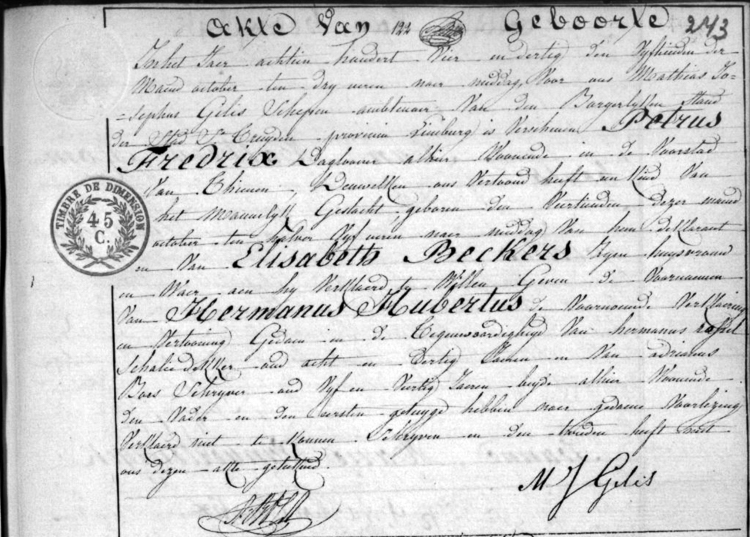 Akte Van 122 Geboorte 243
In het Jaer achtien hundert Vier en dertig den Vyftienden der
Maend october ten dry uren naer middag, Voor ons Mathias Jo-
=sephus Gelis Schepen ambtenaer Van den Borgerlyken Stand
der Stad St Truyden provincie Limburg is Verschenen Petrus
Fredrix Dagloover alhier Woonende in de Voorstad
Van Thienen, Dewelken ons Vertoond heeft een Kind Van
het Mannelyk Geslacht, geboren den Veertienden dezer maend
october ten half Vyf uren naer middag Van hem deKlarant
en Van Elisabeth Beckers Zyne huysvrouw
en Waer aen hy Verklaerd te Willen Geven de Voornamen
Van Hermanus Hubertus de Voornoemde Verklaering
en Vertooning Gedaen in de Tegenwoordigheyd Van hermanus
Schaliedekker oud acht en dertig Jaeren en Van adrianus
Boes Schryver oud Vyf en Veertig Jaeren beyde alhier Woonende
den Vader en den eersten getuyge hebben naer gedaene Voorlezing
Verklaerd niet te Konnen Schryven en den tweeden heeft met
ons dezen akte geteekend.
M J Gelis
TIMBRE DE DIMENSION
45
C.